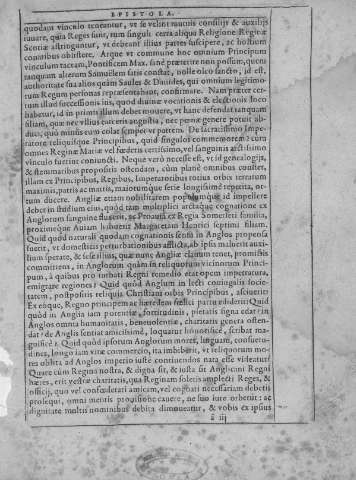 EPISTOLA.
quodam vinculo teneantur, vt se velint mutuis consilijs & auxilijs
iuuare, quia Reges sunt, tum singuli certa aliqua Religione Reginæ
Scotiæ astringantur, vt debeant illius partes suscipere, ac hostium
conatibus obsistere. Atque vt commune hoc omnium Principum
vinculum taceam, Pontificem Max. sanè præterire non possum, quem
tanquam alterum Samuelem satis constat, nolle oleo sancto, id est,
authoritate sua alios quàm Saules & Dauides, qui omnium legitimo-
rum Regum personas repræsentabant, confirmare. Nam præter cer-
tum illud successionis ius, quod diuinæ vocationis & electionis loco
habetur, id in primis illum debet mouere, vt hanc defendat tanquam
filiam, quæ nec vllius carceris angustia, nec pœnæ genere potuit ab-
duci, quo minus eum colat semper vt patrem. De sacratissimo Impe-
ratore reliquisque Principibus, quid singulos commemorem? cum
omnes Reginæ Mariæ vel fœderis certissimo, vel sanguinis arctissimo
vinculo fuerint coniuncti. Neque verò necesse est, vt id genealogijs,
& stemmatibus propositis ostendam, cùm planè omnibus constet,
illam ex Principibus, Regibus, Imperatoribus totius orbis terrarum
maximis, patris ac matris, maiorumque serie longissimè repetita, or-
tum ducere. Angliæ etiam nobilitatem populumque id impellere
debet in studium eius, quòd tam multiplici arctaque cognatione ex
Anglorum sanguine fluxerit, ac Proauia ex Regia Somerseti familia,
proximeque Auiam habuerit Margaretam Henrici septimi filiam.
Quid quòd naturali quodam cognationis sensu in Anglos propensa
fuerit, vt domesticis perturbationibus afflicta, ab ipsis maluerit auxi-
lium sperare, & sese illius, quæ nunc Angliæ clauum tenet, promissis
committere, in Anglorum quàm in reliquorum vicinorum Princi-
pum, à quibus pro turbati Regni remedio etat opem impetratura,
emigrare regiones? Quid quòd Anglum in lecti coniugalis socie-
tatem, postpositis reliquis Christiani orbis Principibus, asciuerit?
Ex eóque, Regno principem ac hæredem fœlici partu ediderit? Quid
quòd in Anglia iam potentiæ, fortitudinis, pietatis signa edat? in
Anglos omnia humanitatis, beneuolentiæ, charitatis genera osten-
dat? de Anglis sentiat amicissimè, loquatur honorificè, scribat ma-
gnificè? Quid quòd ipsorum Anglorum mores, linguam, consuetu-
dines, longo iam vitæ commercio, ita imbiberit, vt reliquorum mo-
res oblita ad Anglos imperio iustè continendos nata esse videatur?
Quare cùm Regina nostra, & digna sit, & iusta sit Anglicani Regni
hæres, erit vestræ charitatis, qua Reginam soletis amplecti Reges, &
officij, quo vel confœderati amicam, vel cognati necessariam debetis
prosequi, omni mentis propositione cauere, ne suo iure orbetur: ac
dignitate multis nominibus debita dimoueatur, & vobis ex ipsius
ā iij